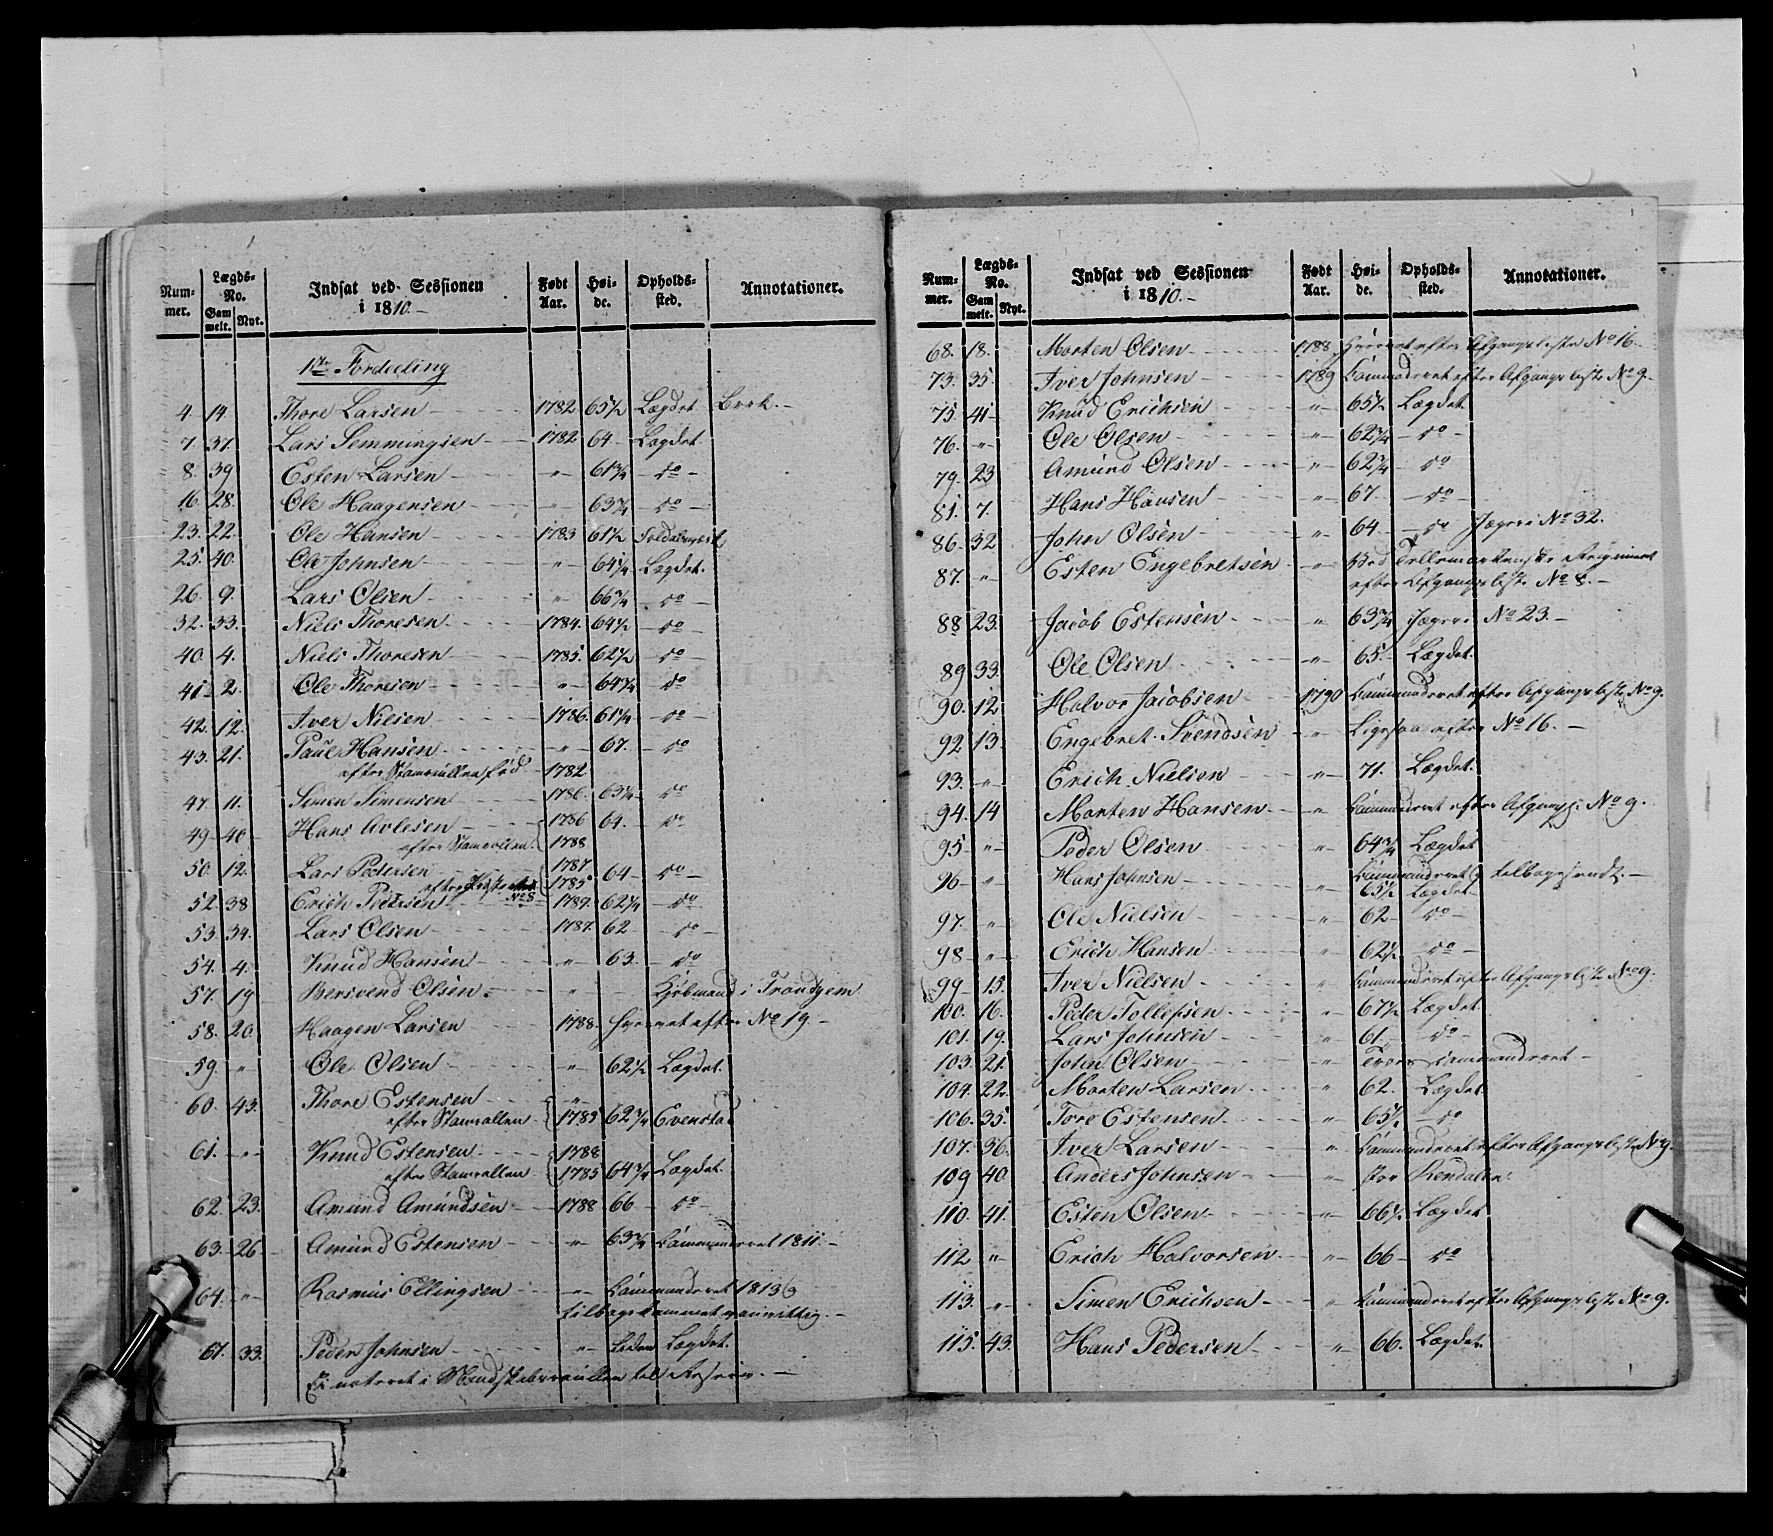 Num-
mer.
Lægds-
No.
Gam
melt.
Nyt.
Indsat ved Sessionen
i 1810.-
Født
Aar.
Høi-
de.
Opholds-
sted.
Annotationer.
1ste Fordeeling
4. 14. Thore Larsen 1782 65½ Lægdet
7. 37. Lars Semmingsen 1782 64 Lægdet
8. 39 Esten Larsen " 61¾ do
16. 28. Ole Haagensen " 63¾ do
23. 22. Ole Hansen 1783 61½
25. 40. Ole Johnsen " 64¼ Lægdet.
26. 9. Lars Olsen " 66¾ do
32. 33. Niels Thoresen 1784. 64½ do
40. 4. Niels Thoresen 1785. 62½ do
41 2. Ole Thoresen " 64¾ do
42. 12. Iver Nilsen 1786. 61¼ do
43. 21. Paul Hansen " 67. do
efter Stamrullen fød 1782
47. 11. Simen Simensen 1786. 63¼ do
49 40 Hans Avlesen 1786 64. do
efter Stamrollen 1788
50. 12. Lars Pedersen 1787 64 do
1785
52. 38 Erich Pedersen No 8 1787. 62¼ do
53. 34. Lars Olsen 1787. 62 do
54. 4. Knud Hansen " 63. do
57. 19 Bersvend Olsen " Kjøbmand i Trondhjem
58. 20. Haagen Larsen 1788. hvervet efter No 19.
59. " Ole Olsen " 62½ Lægdet.
60. 43. Thore Estensen "
efter Stamrollen 1783 62¾ Evenstad
61. " Knud Estensen 1788
efter Stamrollen 1785 64¾ Lægdet.
62. 23. Amund Amundsen 1788 66 do
63. 26 Amund Estensen " 63¾ Commanderet 1811.
64. " Rasmus Ellingsen " Commanderet 1813
tilbagekommet
67. 33. Peder Johnsen " Liden Lægdet.
noteret i Mandskabsrullen til
Num-
mer.
Lægds-
No.
Gam
melt.
Nyt.
Indsat ved Sessionen
i 1810.-
Født
Aar.
Høi-
de.
Opholds-
sted.
Annotationer.
68. 18. Morten Olsen 1788 Hvervet efter Afgangsliste No 16.
73. 35. Iver Johnsen 1789 Commanderet efter Afgangsliste No 9.
75. 41 Knud Erichsen " 65½ Lægdet.
76. " Ole Olsen " 62¾ do
79. 23 Amund Olsen " 62¾ do
81. 7. Hans Hansen " 67. do
86. 32 John Olsen " 64. do Jæger i No 32.
87. " Esten Engebretsen " Ved Tellemarkenske Regiment
efter Afgangsliste No 8.
88 23. Jacob Estensen " 63¾ Jæger i No 23.
89 33. Ole Olsen " 65. Lægdet.
90. 12 Halvor Jacobsen 1790 Commanderet efter Afgangsliste No 9.
92. 13. Engebret Svendsen " Ligesaa efter No 16.
93. " Erich Nielsen " 71. Lægdet.
94. 14 Morten Hansen " Commanderet efter Afgangsl. No 9.
95 " Peder Olsen " 64¾ Lægdet
96 " Hans Johnsen Commanderet tilbagesendt
" 65½ Lægdet
97. " Ole Nielsen " 62 do
98 " Erich Hansen " 62½ do
99 15. Iver Nielsen " Commanderet efter Afgangsliste No 9.
100. 16. Peder Tollefsen " 67½ Lægdet.
101. 19. Lars Johnsen " 61. do
103. 21. John Olsen " commanderet
104. 22. Morten Larsen " 62. Lægdet
106. 35. Tore Estensen " 65½ do
107. 36. Iver Larsen " Commanderet efter Afgangsliste No 9.
109 40. Anders Johnsen " Rendalen.
110. 41. Esten Olsen " 66½ Lægdet
112 " Erich Halvorsen " 66 do
113. " Simen Erichsen " Commanderet efter Afgangsliste No 9.
115. 43. Hans Pedersen " 66. Lægdet.